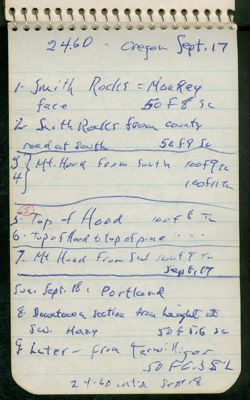 2460 - Oregon Sept. 17
1- Smith Rocks = Monkey
face 50 F 8 Sc
2- Smith Rocks from county
road at south 50 f 9 Sc
3 } Mt. Hood from South 100 f 9 Tc
4 100 f 11 Tc
(5)
5- Top of Hood 100 f 8 Tc
6- Top of Hood to top of pine . . .
7. Mt Hood from SW 100 f 9 Tc
Sept. 17
Sun. Sept. 18: Portland
8 Downtown section from height at
SW. Hazy 50 f 5.6 Sc
9- Later - from Terwilliger
50 F 6.3
24-60 Sept 18